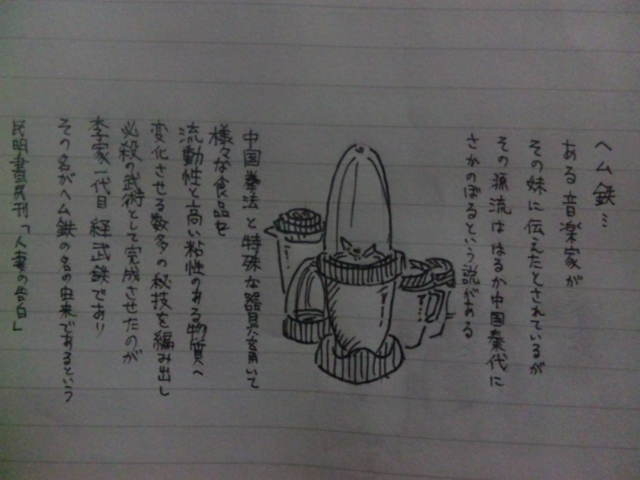 ヘム鉄…
ある音楽家が
その妹に伝えたとされているが
その源流ははるか中国秦代に
さかのぼるという説がある
中国拳法と特殊な器具を用いて
様々な食品を
流動性と高い粘性のある物質へ
変化させる数多の秘技を編み出し
必殺の武術として完成させたのが
李家一代目 経武鉄であり
その名がヘム鉄の名の由来であるという
民明書房刊「人妻の告白」